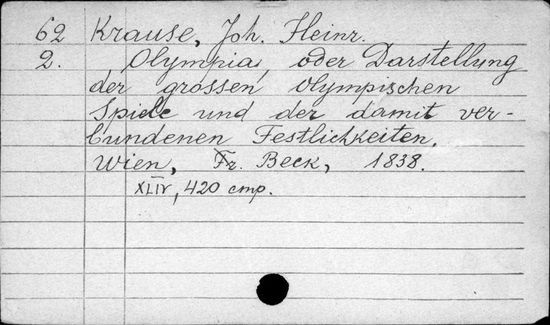 62 Krause, Joh. Heinr.
2. Olympia, oder Darstellung
der grossen olympischen
Spiele und der damit ver-
bundenen Festlichkeiten.
Wien, Fr. Beck, 1838.
XLIV, 420 cmp.